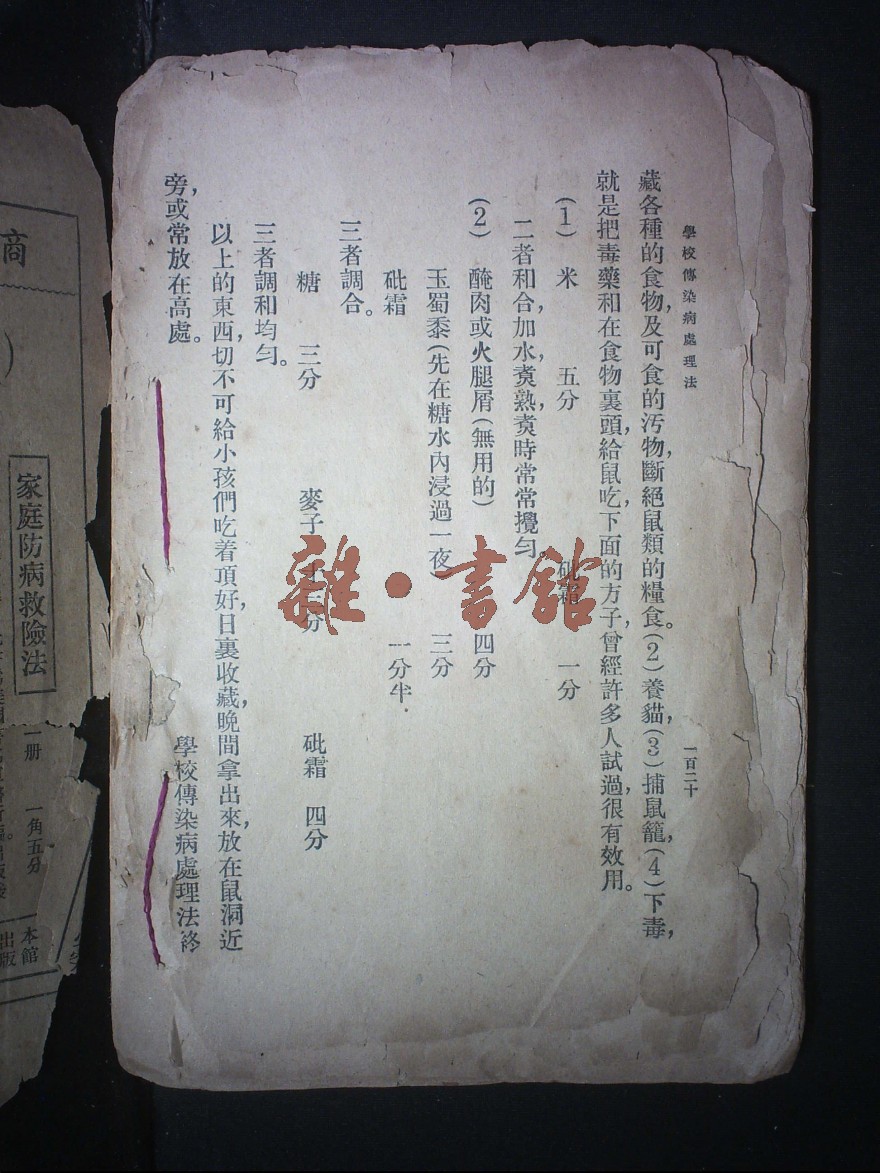 學校傳染病處理法
一百二十
藏各種的食物,及可食的汚物,斷絕鼠類的糧食。(2)養貓,(3)捕鼠籠,(4)下毒,
就是把毒藥和在食物裏頭,給鼠吃,下面的方子,曾經許多人試過,很有效用。
(1) 米 五分 砒霜 一分
二者和合,加水,煑熟,煑時常常攪勻。
(2) 醃肉或火腿屑(無用的) 四分
玉蜀黍(先在糖水內浸過一夜) 三分
砒霜 一分半.
三者調合。
糖 三分 麥子 分 砒霜 四分
三者調和均勻。
以上的東西,切不可給小孩們吃着頂好,日裏收藏,晚間拿出來,放在鼠洞近
旁,或常放在高處。
學校傳染病處理法終
商
家庭防病救險法
一册 一角五分
本館
出版
雜·書館